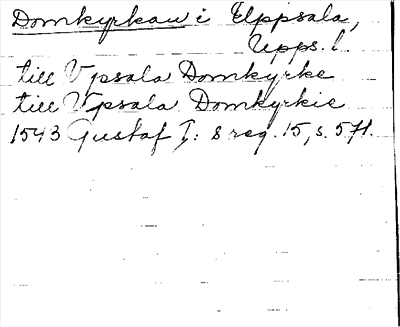 Domkyrkan i Uppsala,
Upps. l.
till Vpsala Domkyrke
till Vpsala Domkyrkie
1543 Gustaf I:s reg. 15, s. 571.